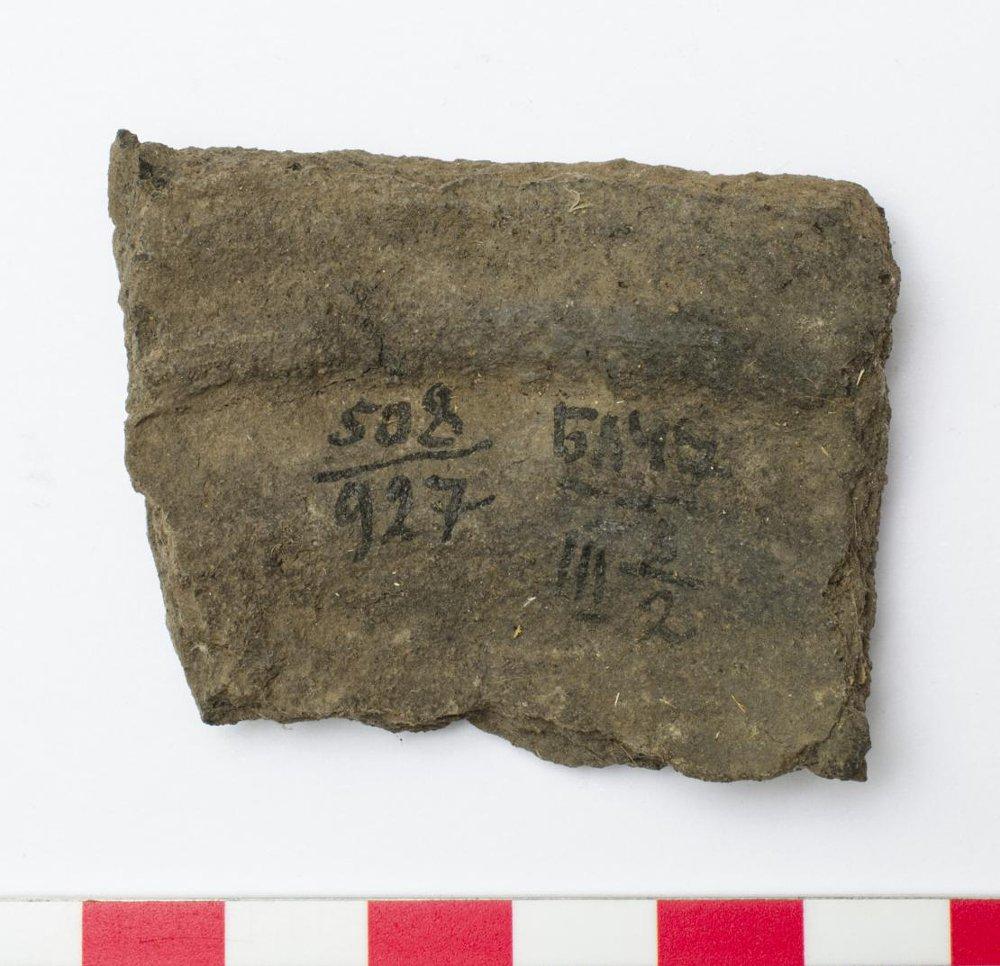 508
927
БЛ48
III 2/2